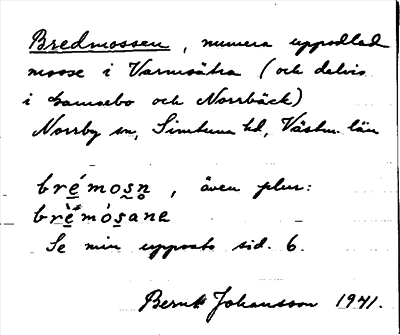 Bredmossen, numera uppodlad
mosse i Varmsätra (och delvis
i Lamsebo och Norrbäck)
Norrby sn, Simtuna hd, Västm. län
brémosn, även plur:
brèmósane
Se min uppsats sid. 6.
Bernt Johansson 1941.